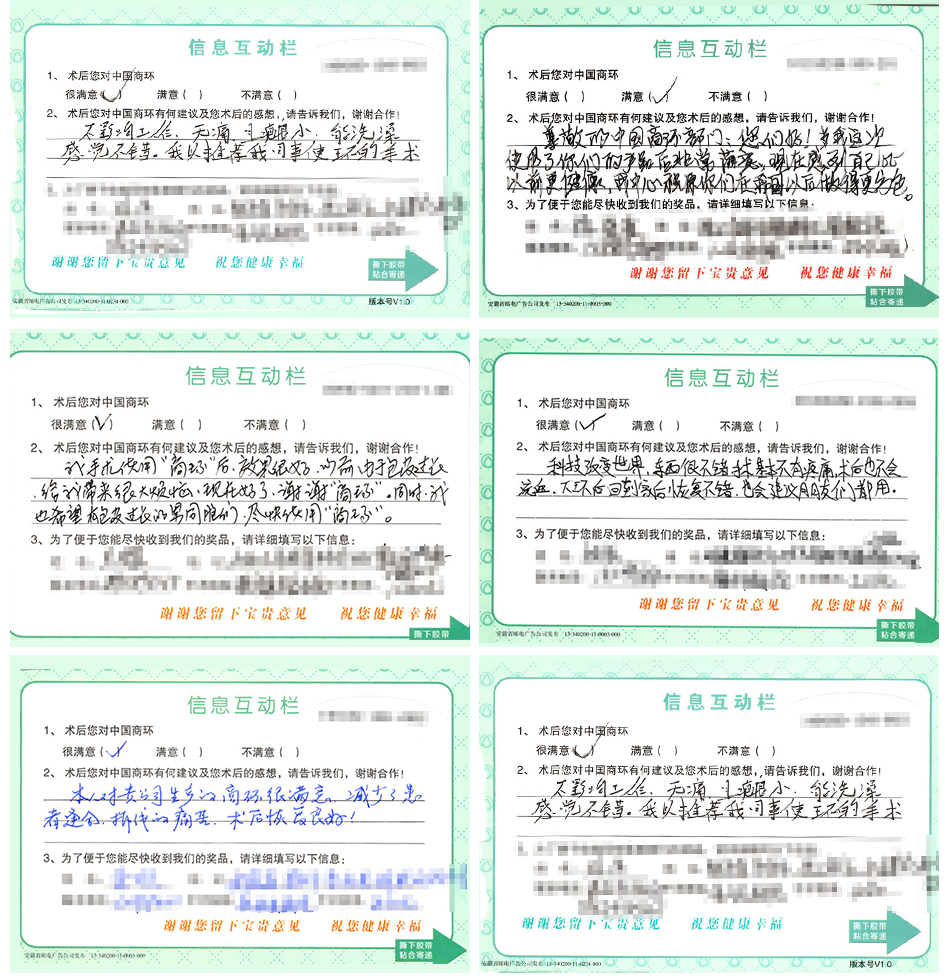 信息互动栏
1、术后您对中国商环
很满意(✓) 满意( ) 不满意( )
2、术后您对中国商环有何建议及您术后的感想,请告诉我们,谢谢合作!
不影响工作、无痛、小、能洗澡
感觉不错。我以推荐我同事使 环的手术
谢谢您留下宝贵意见 祝您健康幸福
撕下胶带
粘合寄递
安徽省邮电广告公司发布 13-340200-11-0234-000
版本号V1.0
信息互动栏
1、术后您对中国商环
很满意( ) 满意(✓) 不满意( )
2、术后您对中国商环有何建议及您术后的感想,请告诉我们,谢谢合作!
尊敬的中国商环部门、您们好!
使用了你们的产品后非常满意,现在感到自己比
以前更健康,
3、为了便于您能尽快收到我们的奖品,请详细填写以下信息:
谢谢您留下宝贵意见 祝您健康幸福
撕下胶带
粘合寄递
安徽省邮电广告公司发布 13-340200-11-0003-000
信息互动栏
1、术后您对中国商环
很满意(✓) 满意( ) 不满意( )
2、术后您对中国商环有何建议及您术后的感想,请告诉我们,谢谢合作!
使用“商环”后,效果很好,以前由于包皮过长
给我带来很大烦恼,现在好了,谢谢“商环”。同时,我
也希望包皮过长的男同胞们,尽快使用“商环”。
3、为了便于您能尽快收到我们的奖品,请详细填写以下信息:
谢谢您留下宝贵意见 祝您健康幸福
撕下胶带
信息互动栏
1、术后您对中国商环
很满意(✓) 满意( ) 不满意( )
2、术后您对中国商环有何建议及您术后的感想,请告诉我们,谢谢合作!
科技改变世界,东西很不错,我基本不太疼痛,术后也不会
流血。 回到家后恢复不错,也会建议 友们都用。
3、为了便于您能尽快收到我们的奖品,请详细填写以下信息:
谢谢您留下宝贵意见 祝您健康幸福
撕下胶带
粘合寄递
安徽省邮电广告公司发布 13-340200-11-0003-000
信息互动栏
1、术后您对中国商环
很满意(✓) 满意( ) 不满意( )
2、术后您对中国商环有何建议及您术后的感想,请告诉我们,谢谢合作!
本人对贵公司生产的商环很满意,减少了患
者缝合、拆线的痛苦,术后恢复良好!
3、为了便于您能尽快收到我们的奖品,请详细填写以下信息:
谢谢您留下宝贵意见 祝您健康幸福
撕下胶带
粘合寄递
安徽省邮电广告公司发布 13-340200-11-0003-000
信息互动栏
1、术后您对中国商环
很满意(✓) 满意( ) 不满意( )
2、术后您对中国商环有何建议及您术后的感想,请告诉我们,谢谢合作!
不影响工作、无痛、小、能洗澡
感觉不错。我以推荐我同事使 环的手术
谢谢您留下宝贵意见 祝您健康幸福
撕下胶带
粘合寄递
安徽省邮电广告公司发布 13-340200-11-0234-000
版本号V1.0